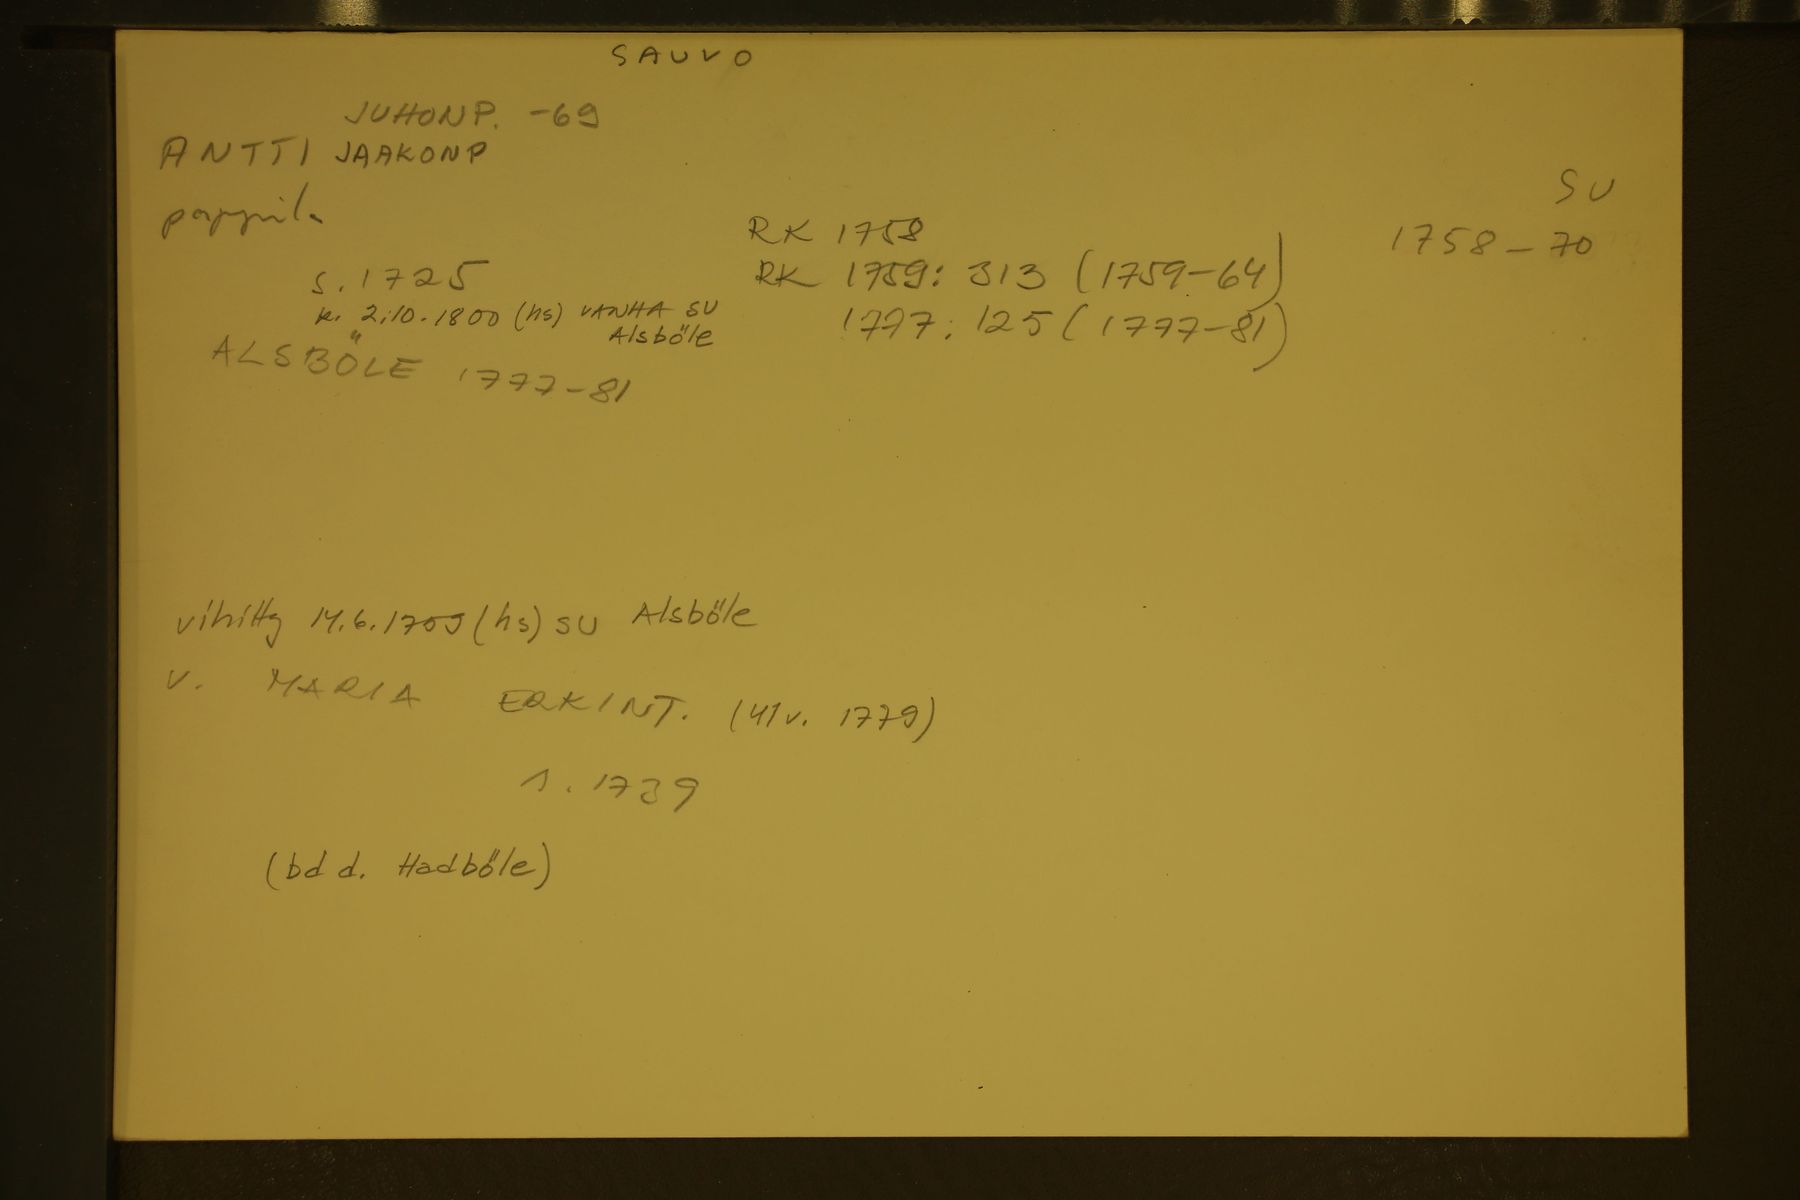 SAUVO
JUHONP. -69
ANTTI JAAKONP
pappila
SU
1758-70
RK 1758
RK 1759: 313 (1759-64)
1777: 125 (1777-81)
s. 1725
k. 2.10.1800 (hs) VANHA SU
Alsböle
ALSBÖLE 1777-81
vihitty 14.6.1759 (hs) SU Alsböle
v. MARIA ERKINT. (41v. 1779)
s. 1739
(bd d. Hadböle)